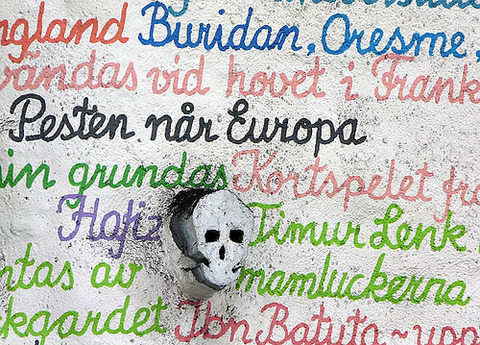 ngland Buridan, Oresme,
vändas vid hovet i Frank
Pesten når Europa
in grundas Kortspelet fr
Hafiz Timur Lenk
ntas av mamluckerna
kgardet Ibn Batuta ~ upp